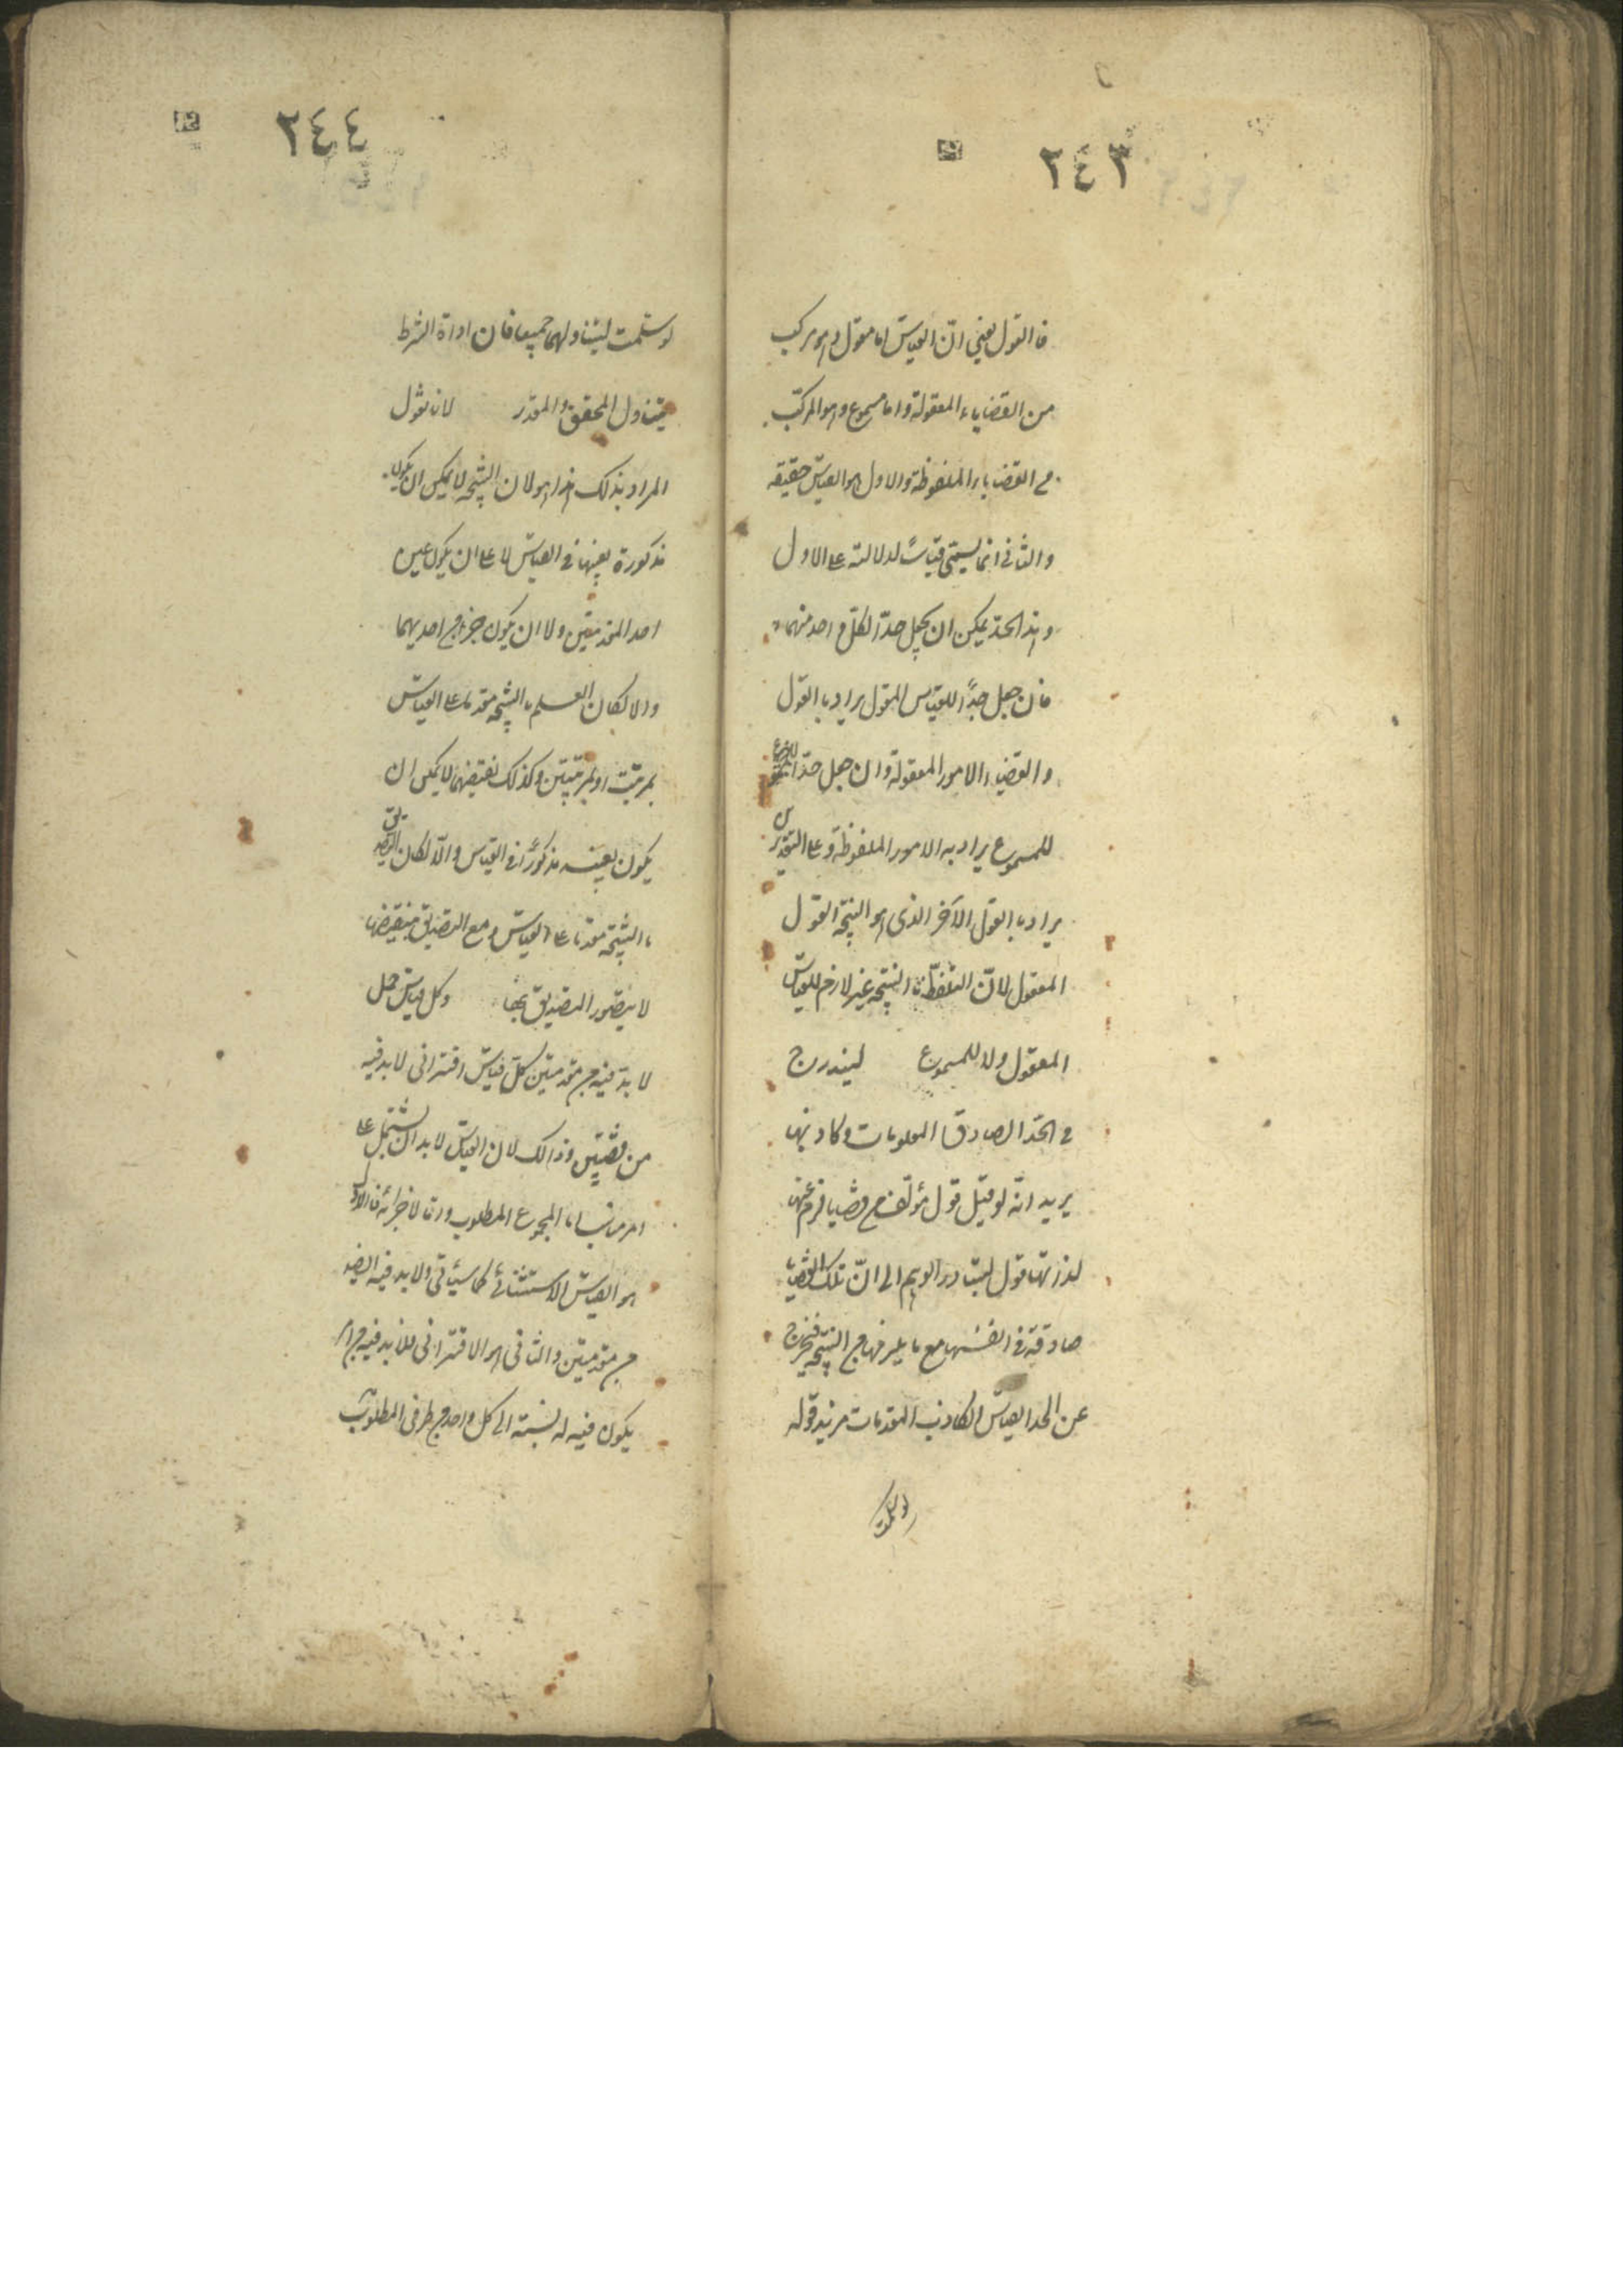 ٢٤٣
فالقول يعنى انّ القياس اما معقول وهو مركب
من القضايا المعقولة واما مسموع وهو المركب
من القضايا الملفوظة والاول هو القياس حقيقه
والثانى انما يسمى قياسًا لدلالته على الاول
وهذا الحدّ يمكن ان يجعل حدّا لكل واحد منهما
فان جعل حدًا للقياس المعقول يراد بالقول
والقضايا الامور المعقولة وان جعل حدّا
للمسموع يراد به الامور الملفوظة وعلى التقديرين
يراد بالقول الآخر الذى هو النتيجة القول
المعقول لانّ التلفظ بالنتيجة غير لازم للقياس
المعقول ولا للمسموع ليندرج
فى الحدّ الصادق المقدمات وكاذبها
يريد انّه لو قيل قول مؤلف من قضايا لزم عنها
لذاتها قول لتبادر الوهم الى انّ تلك القضايا
صادقة فى انفسها مع ما يلزمها من النتيجة فيخرج
عن الحد القياس الكاذب المقدمات فزيد قوله
لو سلمت
٢٤٤
لو سلمت ليتناولهما جميعا فان اداة الشرط
يتناول المحقق والمقدر لانا نقول
المراد بذلك هذا هو لان النتيجة لا يمكن ان يكون
مذكورة بعينها فى القياس لا على ان يكون عين
احد المقدمتين ولا ان يكون جزء من احديهما
والا لكان العلم بالنتيجة مقدما على القياس
بمرتبة او بمرتبتين وكذلك نقيضها لا يمكن ان
يكون بعينه مذكورًا فى القياس والّا لكان التصديق
بالنتيجة مقدما على القياس ومع التصديق بنقيضها
لا يتصور التصديق بها وكل قياس حمل
لا بدّ فيه من مقدمتين كل قياس اقترانى لا بد فيه
من قضيتين وذالك لان القياس لا بد ان يشتمل على
امر مناسب اما لمجموع المطلوب واما لاجزائه فالاول
هو القياس الاستثنائى كما سيأتى ولا بد فيه ايضا
من مقدمتين والثانى هو الاقترانى فلا بد فيه من امر
يكون فيه له نسبة الى كل واحد من طرفى المطلوب